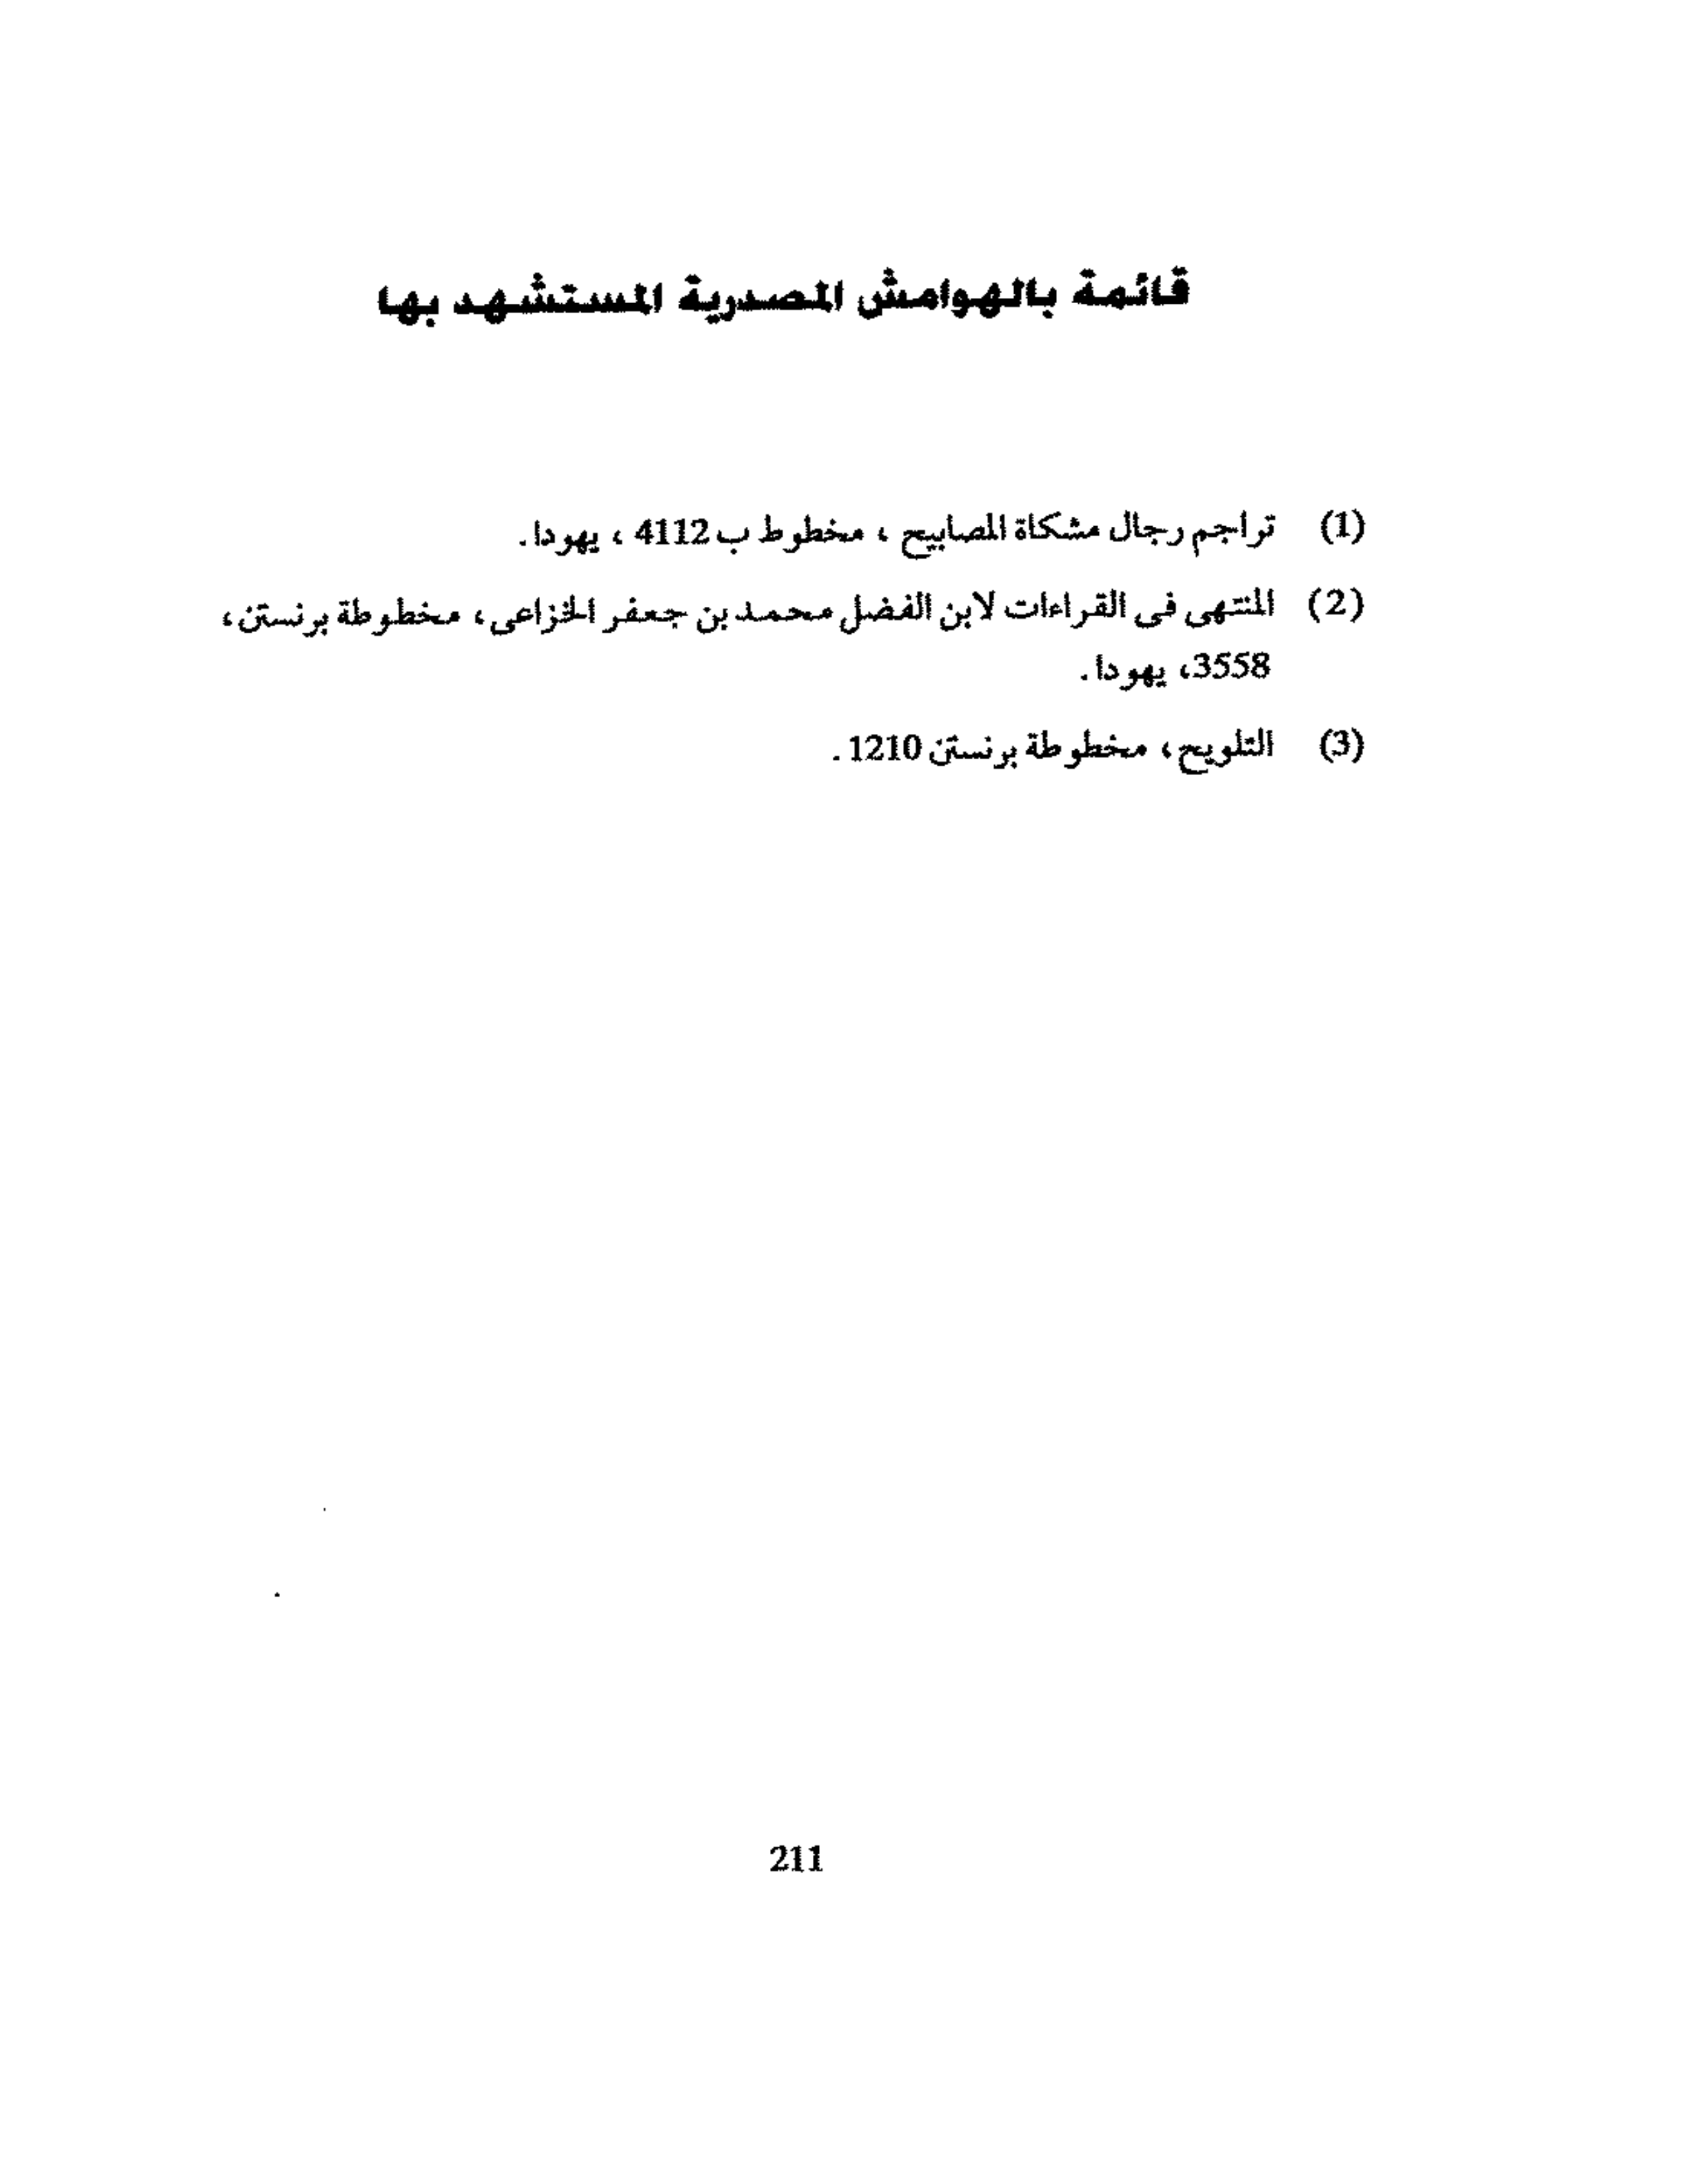 قائمة بالهوامش المصدرية المستشهد بها
(1) تراجم رجال مشكاة المصابيح ، مخطوط ب 4112 ، يهودا.
(2) المنتهى فى القراءات لابن الفضل محمد بن جعفر الخزاعى، مخطوطة برنستن،
3558، يهودا.
(3) التلويح، مخطوطة برنستن 1210 .
211